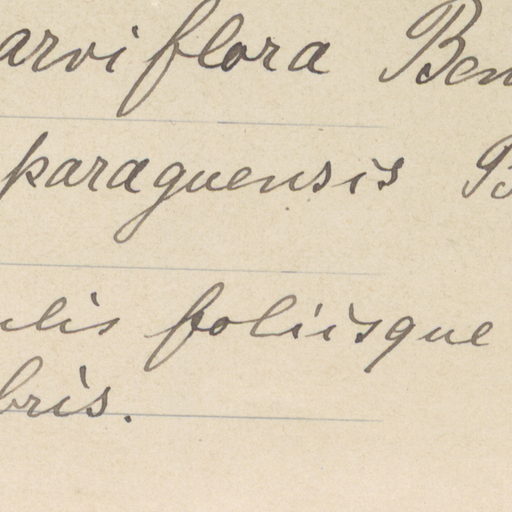 arviflora Ben
paraguensis B
ulis foliisque
bris.